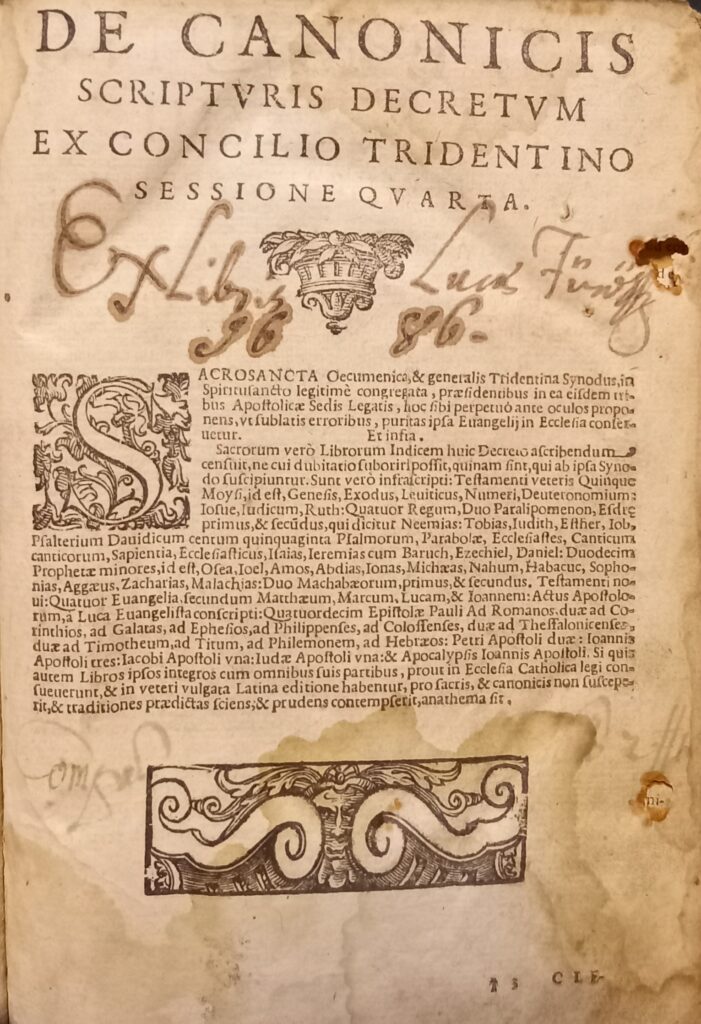 DE CANONICIS
SCRIPTVRIS DECRETVM
EX CONCILIO TRIDENTINO
SESSIONE QVARTA.
Ex Libris Lucæ
SACROSANCTA Oecumenica, & generalis Tridentina Synodus, in
Spiritusancto legitimè congregata, præsidentibus in ea eisdem tri-
bus Apostolicæ Sedis Legatis, hoc sibi perpetuò ante oculos propo-
nens, vt sublatis erroribus, puritas ipsa Euangelij in Ecclesia conser-
uetur. Et infra.
Sacrorum verò Librorum Indicem huic Decreto ascribendum
censuit, ne cui dubitatio suboriri possit, quinam sint, qui ab ipsa Syno-
do suscipiuntur. Sunt verò infrascripti: Testamenti veteris Quinque
Moysi, id est, Genesis, Exodus, Leuiticus, Numeri, Deuteronomium:
Iosue, Iudicum, Ruth: Quatuor Regum, Duo Paralipomenon, Esdrę
primus, & secūdus, qui dicitur Neemias: Tobias, Iudith, Esther, Iob,
Psalterium Dauidicum centum quinquaginta Psalmorum, Parabolæ, Ecclesiastes, Canticum
canticorum, Sapientia, Ecclesiasticus, Isaias, Ieremias cum Baruch, Ezechiel, Daniel: Duodecim
Prophetæ minores, id est, Osea, Ioel, Amos, Abdias, Ionas, Michæas, Nahum, Habacuc, Sopho-
nias, Aggæus, Zacharias, Malachias: Duo Machabæorum, primus, & secundus. Testamenti no-
ui: Quatuor Euangelia, secundum Matthæum, Marcum, Lucam, & Ioannem: Actus Apostolo-
rum, à Luca Euangelista conscripti: Quatuordecim Epistolæ Pauli Ad Romanos, duæ ad Co-
rinthios, ad Galatas, ad Ephesios, ad Philippenses, ad Colossenses, duæ ad Thessalonicenses,
duæ ad Timotheum, ad Titum, ad Philemonem, ad Hebræos: Petri Apostoli duæ: Ioannis
Apostoli tres: Iacobi Apostoli vna: Iudæ Apostoli vna: & Apocalypsis Ioannis Apostoli. Si quis
autem Libros ipsos integros cum omnibus suis partibus, prout in Ecclesia Catholica legi con-
sueuerunt, & in veteri vulgata Latina editione habentur, pro sacris, & canonicis non suscepe-
rit, & traditiones prædictas sciens, & prudens contempserit, anathema sit.
CLE-